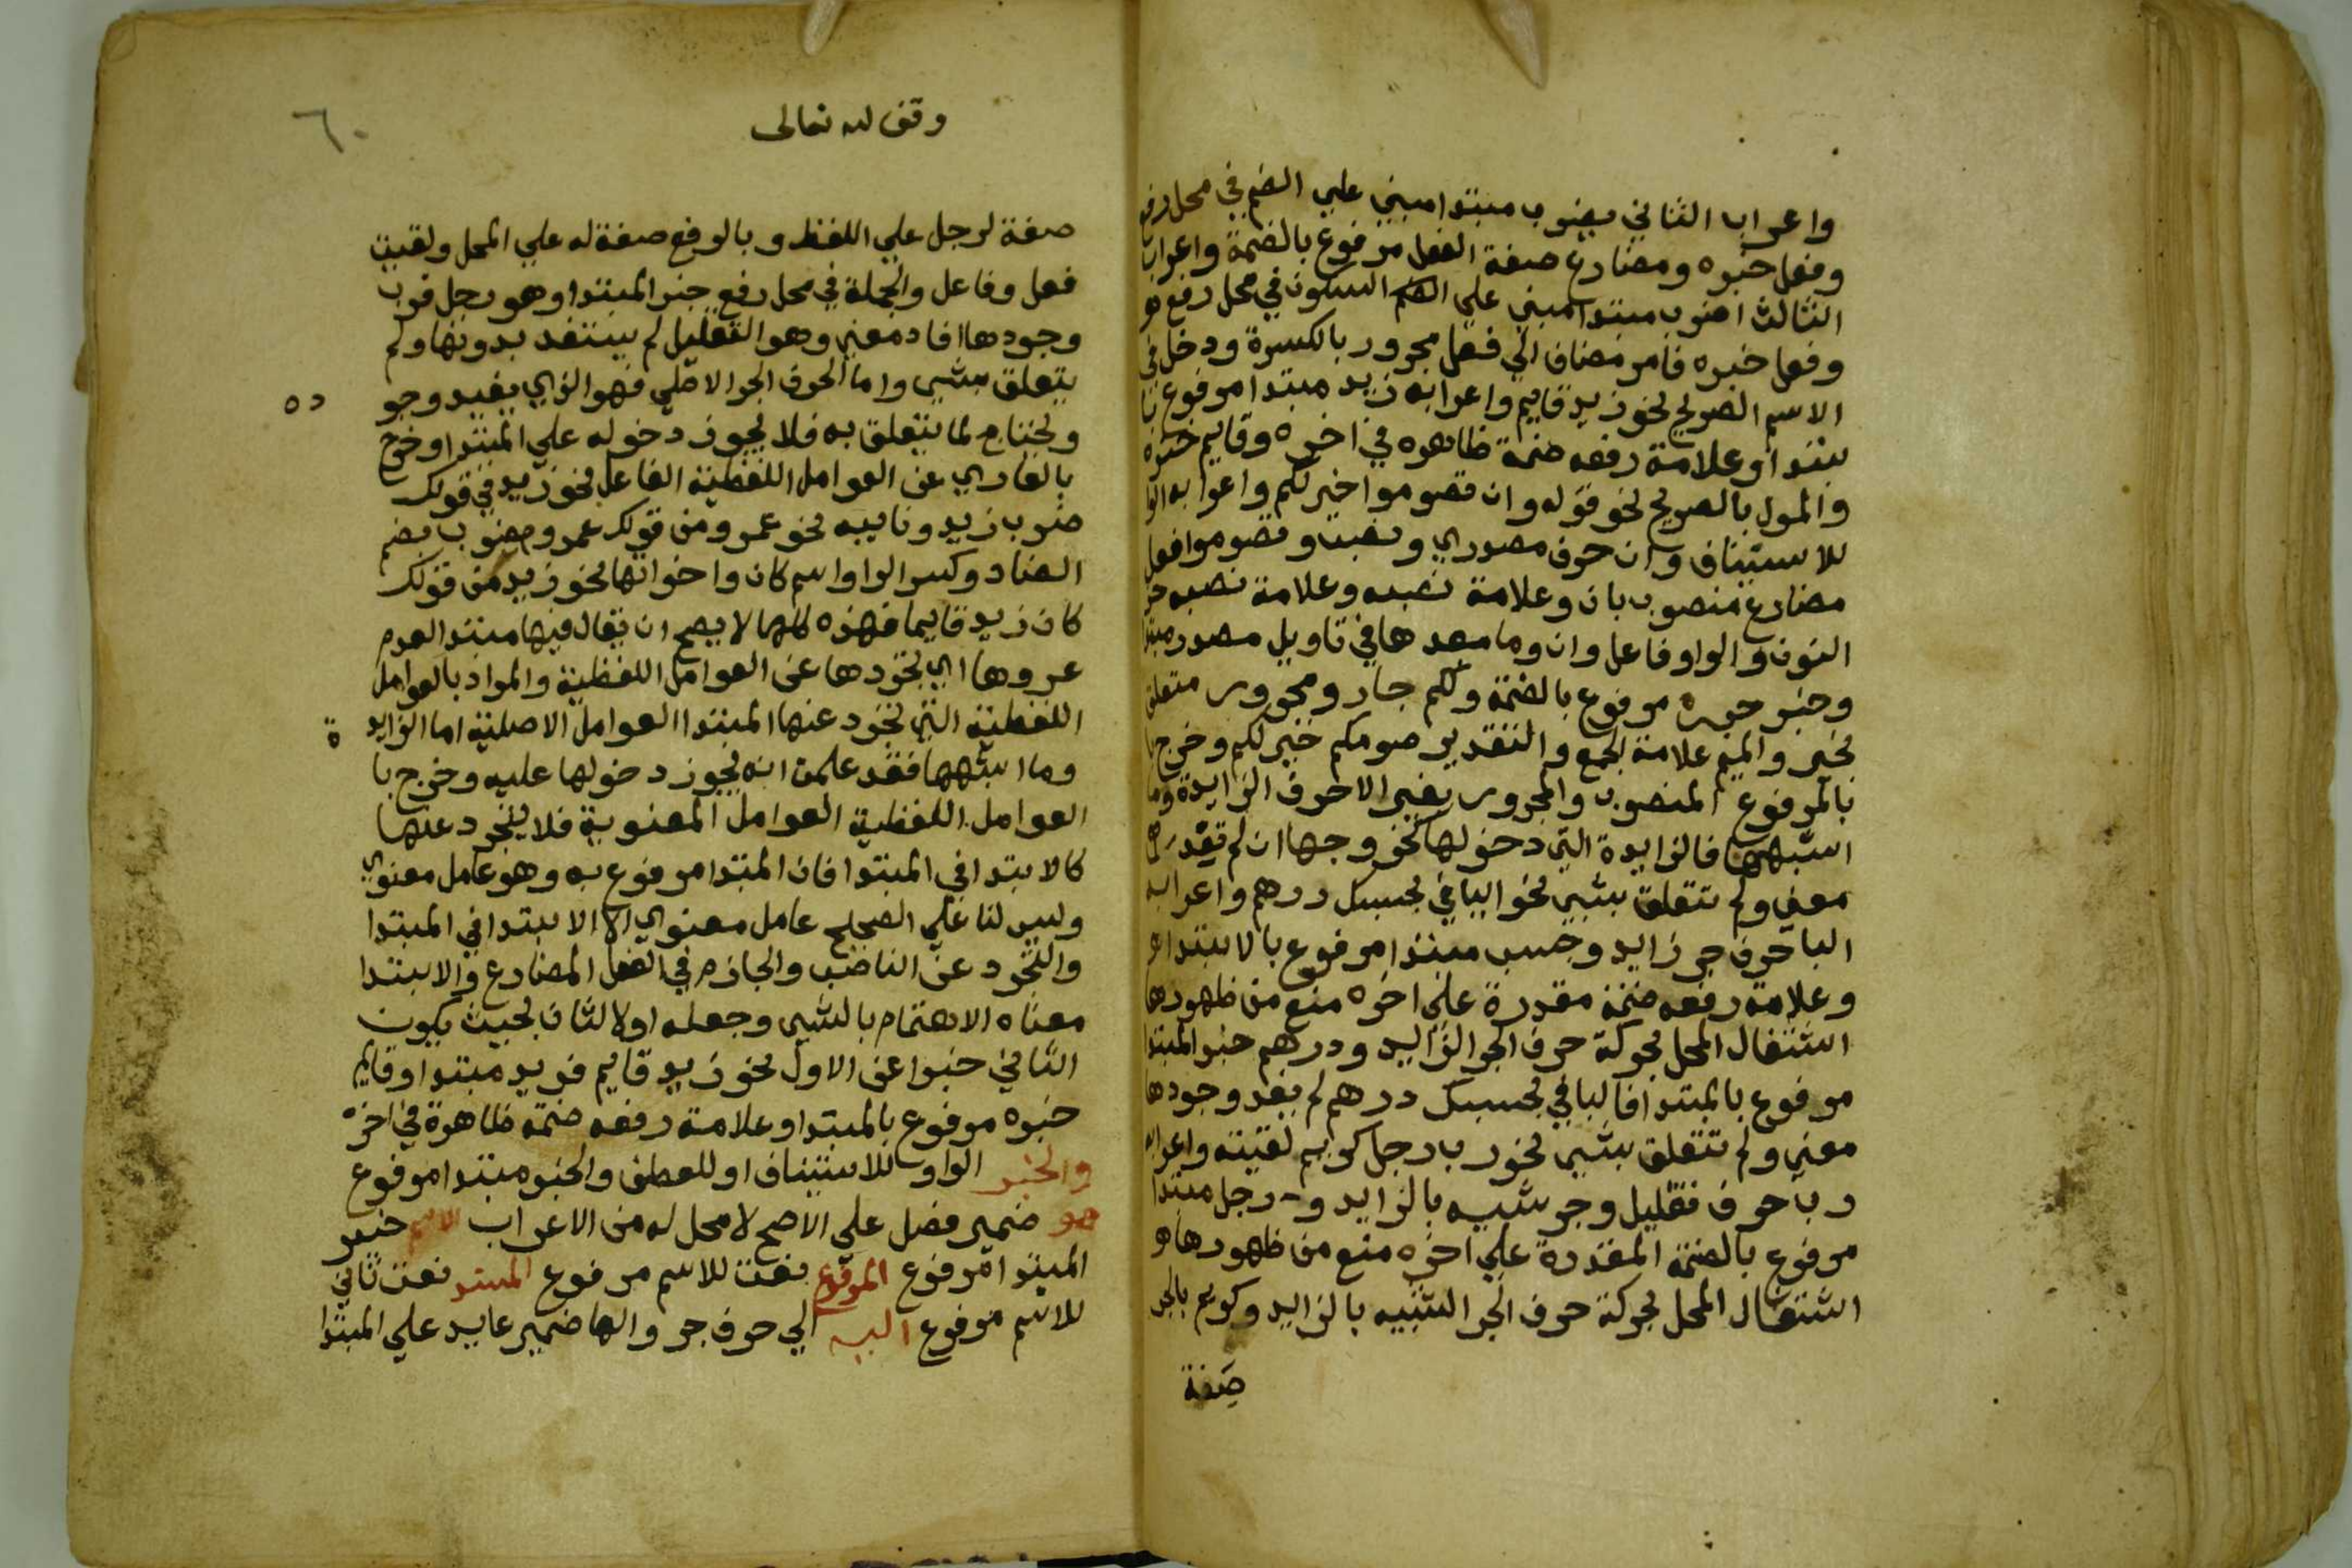 واعراب الثاني يضرب مبتدا مبني علي الضم في محل رفع
وفعل خبره ومضارع صفة الفعل مرفوع بالضمة واعراب
الثالث اضرب مبتدا مبني علي السكون في محل رفع
وفعل خبره فامر مضاف الي فعل مجرور بالكسرة ودخل في
الاسم الصريح نحو زيد قايم واعرابه زيد مبتدا مرفوع با
بتدا وعلامة رفعه ضمة ظاهره في اخره وقايم خبره
والمول بالصريح نحو قوله وان تصوموا خير لكم واعرابه الوا
للاستيناف وان حرف مصدري ونصب وتصوموا فعل
مضارع منصوب بان وعلامة نصبه وعلامة نصبه حذ
النون والواو فاعل وان وما بعدها في تاويل مصدر مبتدا
وخير خبره مرفوع بالضمة ولكم جار ومجرور متعلق
بخير والميم علامة الجمع والتقدير صومكم خير لكم وخرج
بالمرفوع المنصوب والمجرور بغير الاحرف الزايدة وما
اشبهها فالزايدة التي دخولها كخروجها ان لم تفد
معني ولم تتعلق بشيي نحو البا في بحسبك درهم واعرابه
البا حرف جر زايد وحسب مبتدا مرفوع بالابتدا
وعلامة رفعه ضمة مقدرة علي اخره منع من ظهورها
اشتغال المحل بحركة حرف الجر الزايد ودرهم خبر المبتدا
مرفوع بالمبتدا فالبا في بحسبك درهم لم يفد وجودها
معني ولم تتعلق بشيي نحو رب رجل كريم لقيته واعرابه
رب حرف تقليل وجر شبيه بالزايد ورجل مبتدا
مرفوع بالضمة المقدرة علي اخره منع من ظهورها
اشتغال المحل بحركة حرف الجر الشبيه بالزايد وكريم بالجر
صفة
وقف لله تعالى
٦٠
صفة لرجل علي اللفظ وبالرفع صفة له علي المحل ولقيت
فعل وفاعل والجملة في محل رفع خبر المبتدا وهو رجل فرب
وجودها افاد معني وهو التقليل لم يستفد بدونها ولم
يتعلق بشيي واما الحرف الجر الاصلي فهو الذي يفيد وجو ده
ويحتاج لما يتعلق به فلا يجوز دخوله علي المبتدا وخرج
بالعاري عن العوامل اللفظية الفاعل نحو زيد في قولك
ضرب زيد ونايبه نحو عمرو من قولك عمرو مضرب بضم
الضاد وكسر الرا واسم كان واخواتها نحو زيد من قولك
كان زيد قايما فهذه كلها لا يصح ان يقال فيها مبتدا لعدم
عروها اي تجردها عن العوامل اللفظية والمراد بالعوامل
اللفظية التي تجرد عنها المبتدا العوامل الاصلية اما الزايد ة
وما اشبهها فقد علمت انه يجوز دخولها عليه وخرج با
العوامل اللفظية العوامل المعنوية فلا يتجرد عنها
كالابتدا في المبتدا فان المبتدا مرفوع به وهو عامل معنوي
وليس لنا علي الصحيح عامل معنوي الا الابتدا في المبتدا
والتجرد عن الناصب والجازم في الفعل المضارع والابتدا
معناه الاهتمام بالشيي وجعله اولا لثان بحيث يكون
الثاني خبرا عن الاول نحو زيد قايم فزيد مبتدا وقايم
خبره مرفوع بالمبتدا وعلامة رفعه ضمة ظاهرة في اخره
والخبر الواو للاستيناف او للعطف والخبر مبتدا مرفوع
هو ضمير فصل علي الاصح لا محل له من الاعراب الاسم خبر
المبتدا مرفوع المرفوع نعت للاسم مرفوع المسند نعت ثاني
للاسم مرفوع اليه الي حرف جر والها ضمير عايد علي المبتدا